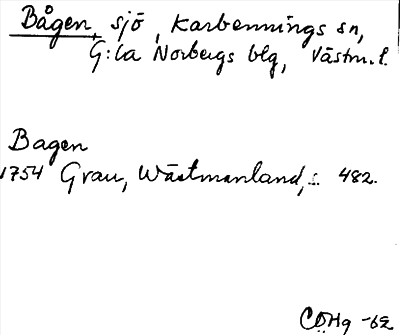 Bågen, sjö, Karbennings sn,
G:la Norbergs blg, Västm. l.
Bagen
1754 Grau, Wästmanland, s. 482.
CÖHg -62